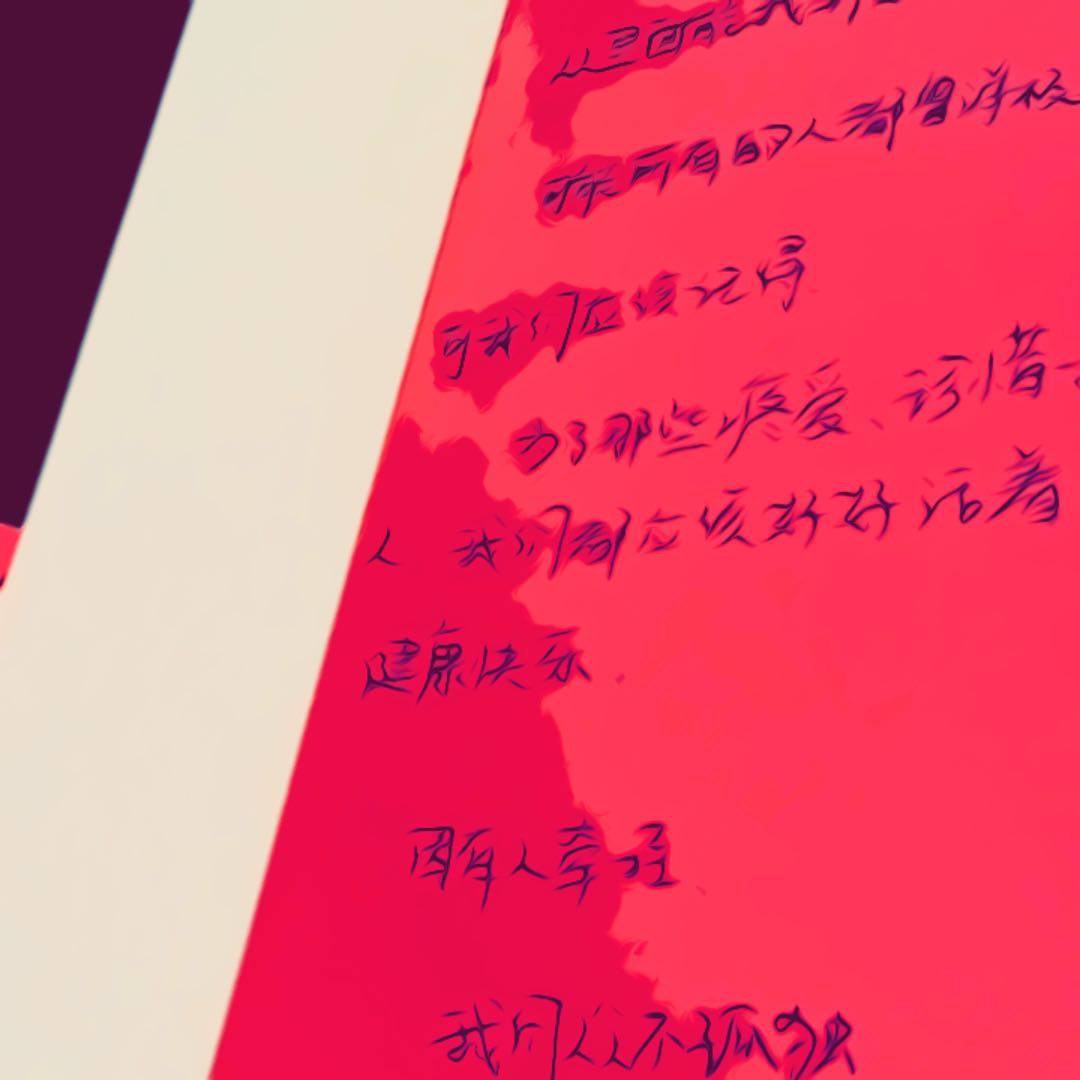 探所有的人都曾
可我们应该记得
为了那些疼爱、珍惜
人 我们都应该好好活着
健康快乐.
因有人牵挂.
我们从不孤独